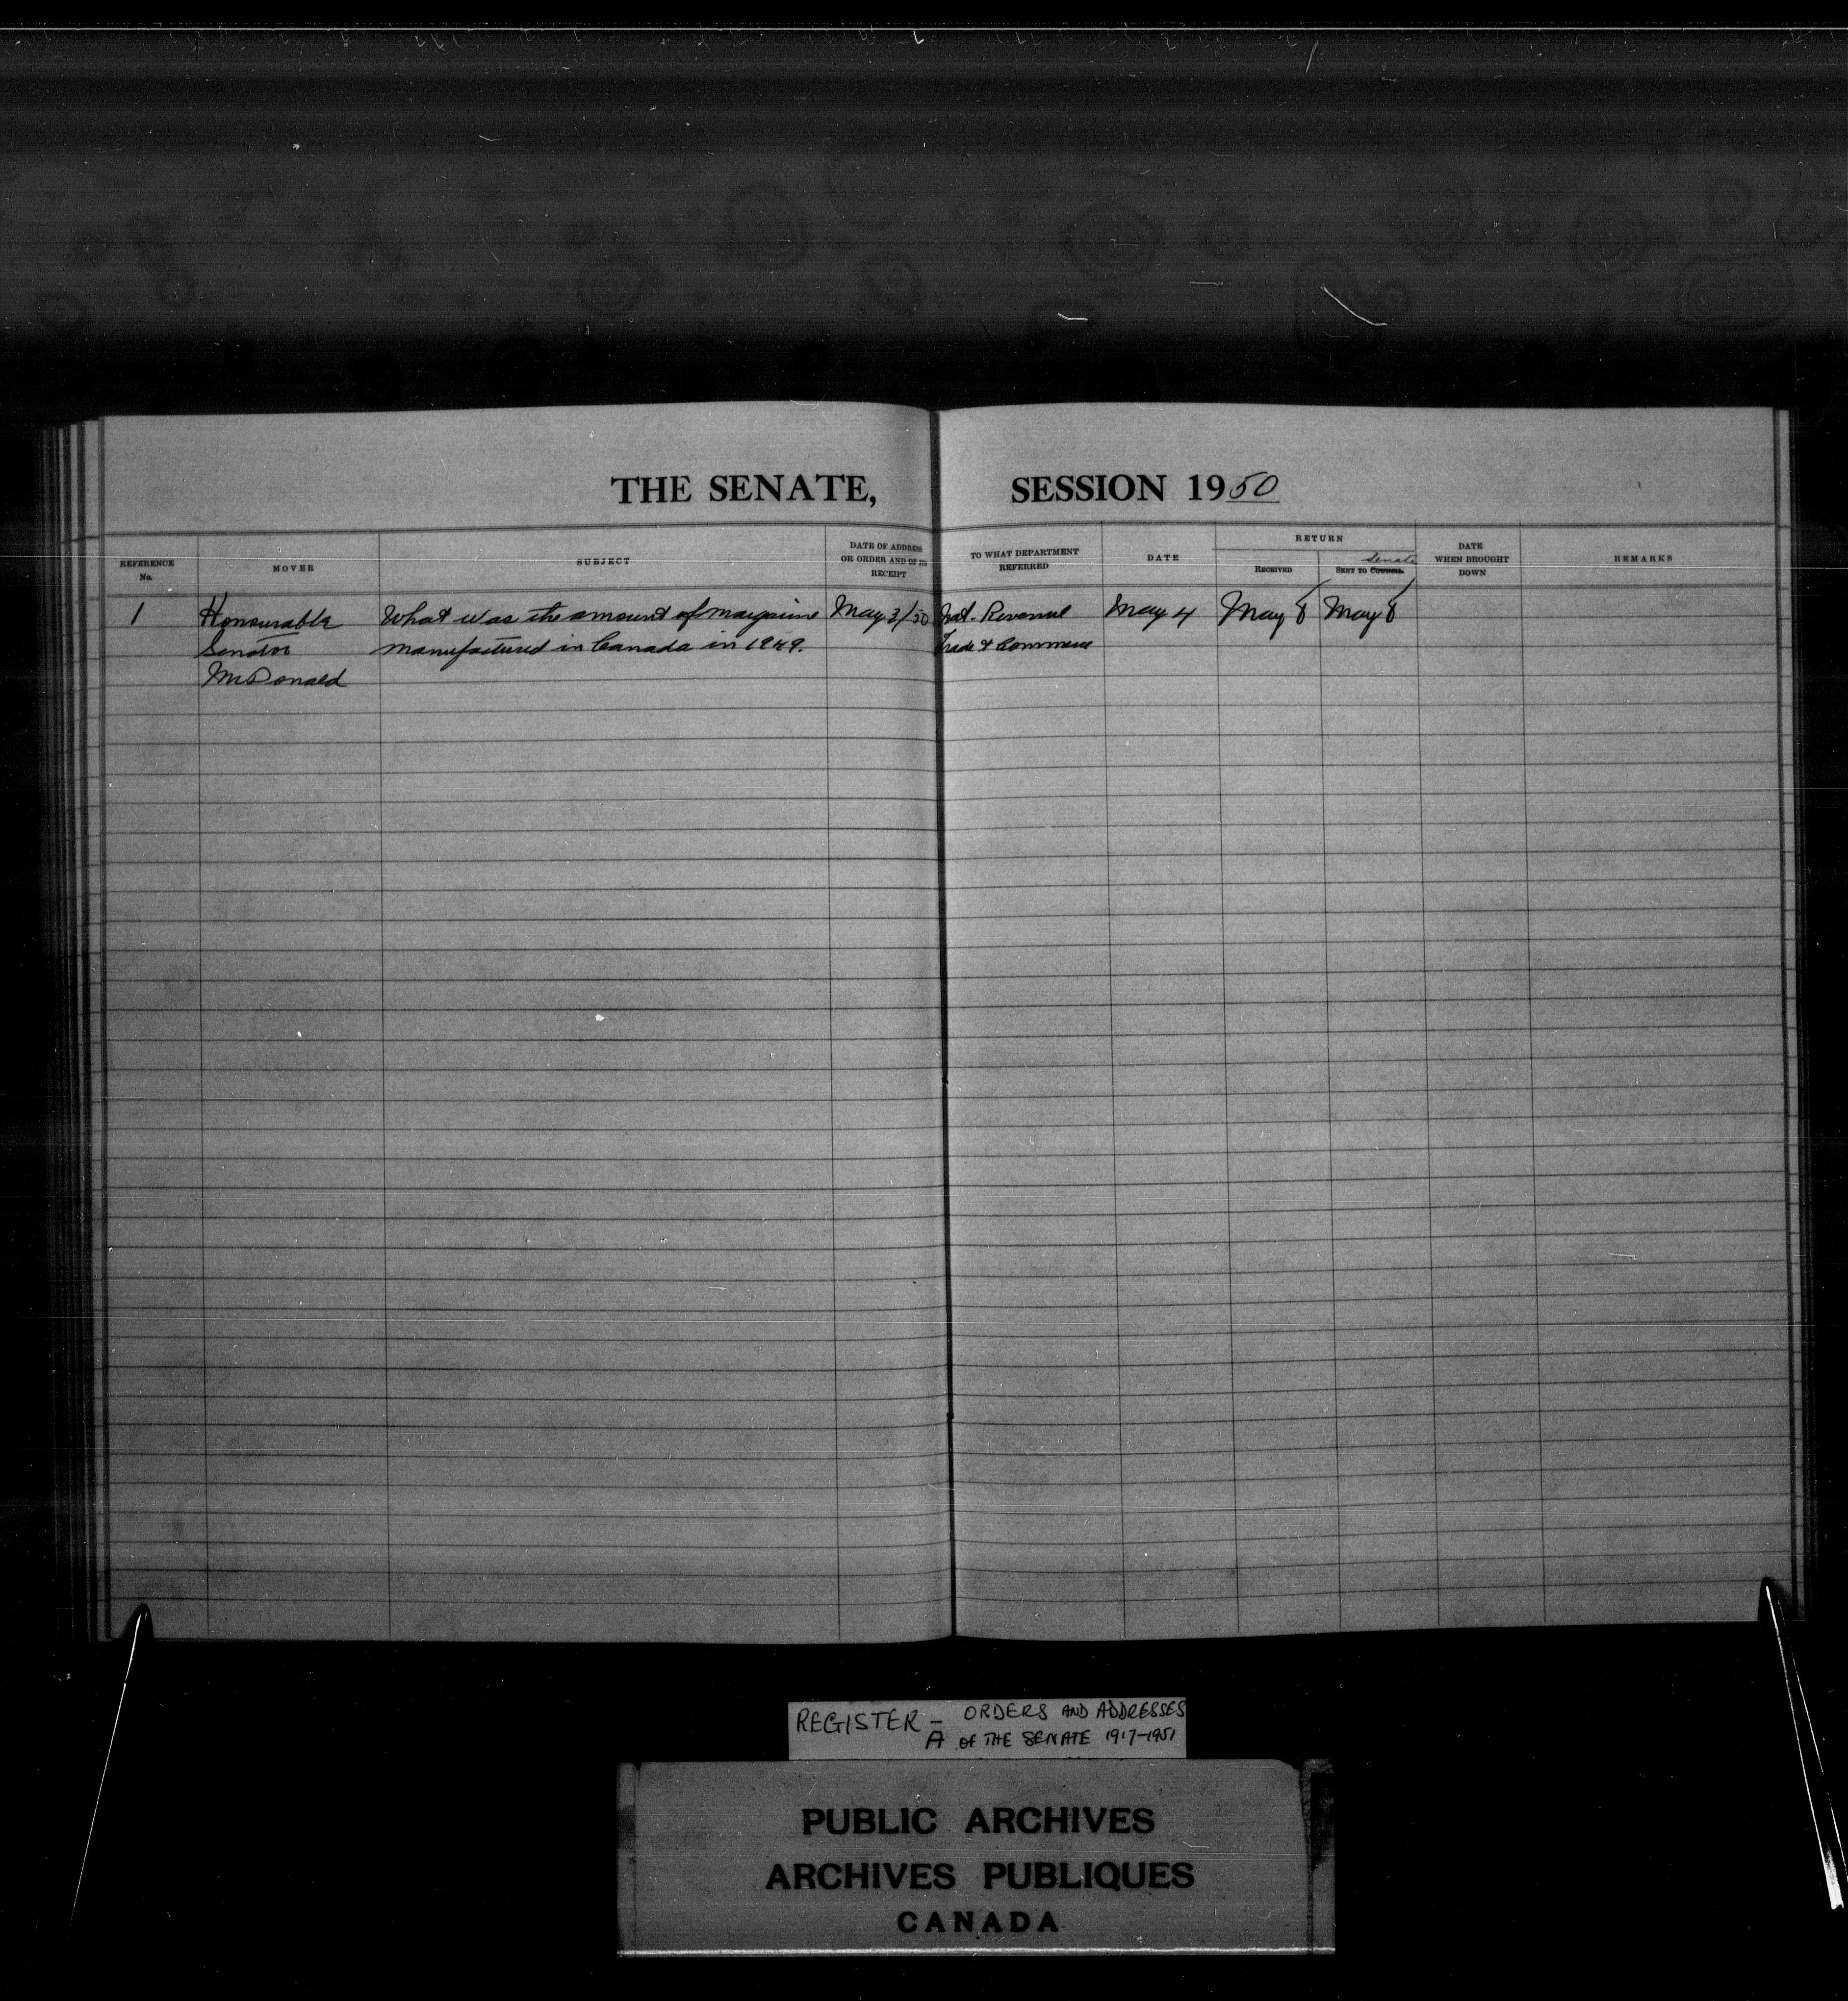 THE SENATE, SESSION 1950
REFERENCE No.
MOVER
SUBJECT
DATE OF ADDRESS OR ORDER AND OF ITS RECEIPT
TO WHAT DEPARTMENT REFERRED
DATE
RETURN
RECEIVED
SENT TO COUNCIL Senate
DATE WHEN BROUGHT DOWN
REMARKS
1 Honourable What was the amount of margarine May 3/50 Nat. Revenue May 4 May 8 May 8
Senator manufactured in Canada in 1949. Trade & Commerce
McDonald
REGISTER - ORDERS AND ADDRESSES
A OF THE SENATE 1917-1951
PUBLIC ARCHIVES
ARCHIVES PUBLIQUES
CANADA